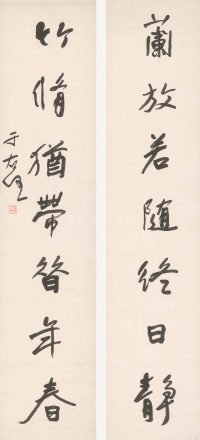 蘭放若随終日靜
竹脩猶帶昝年春
于右任